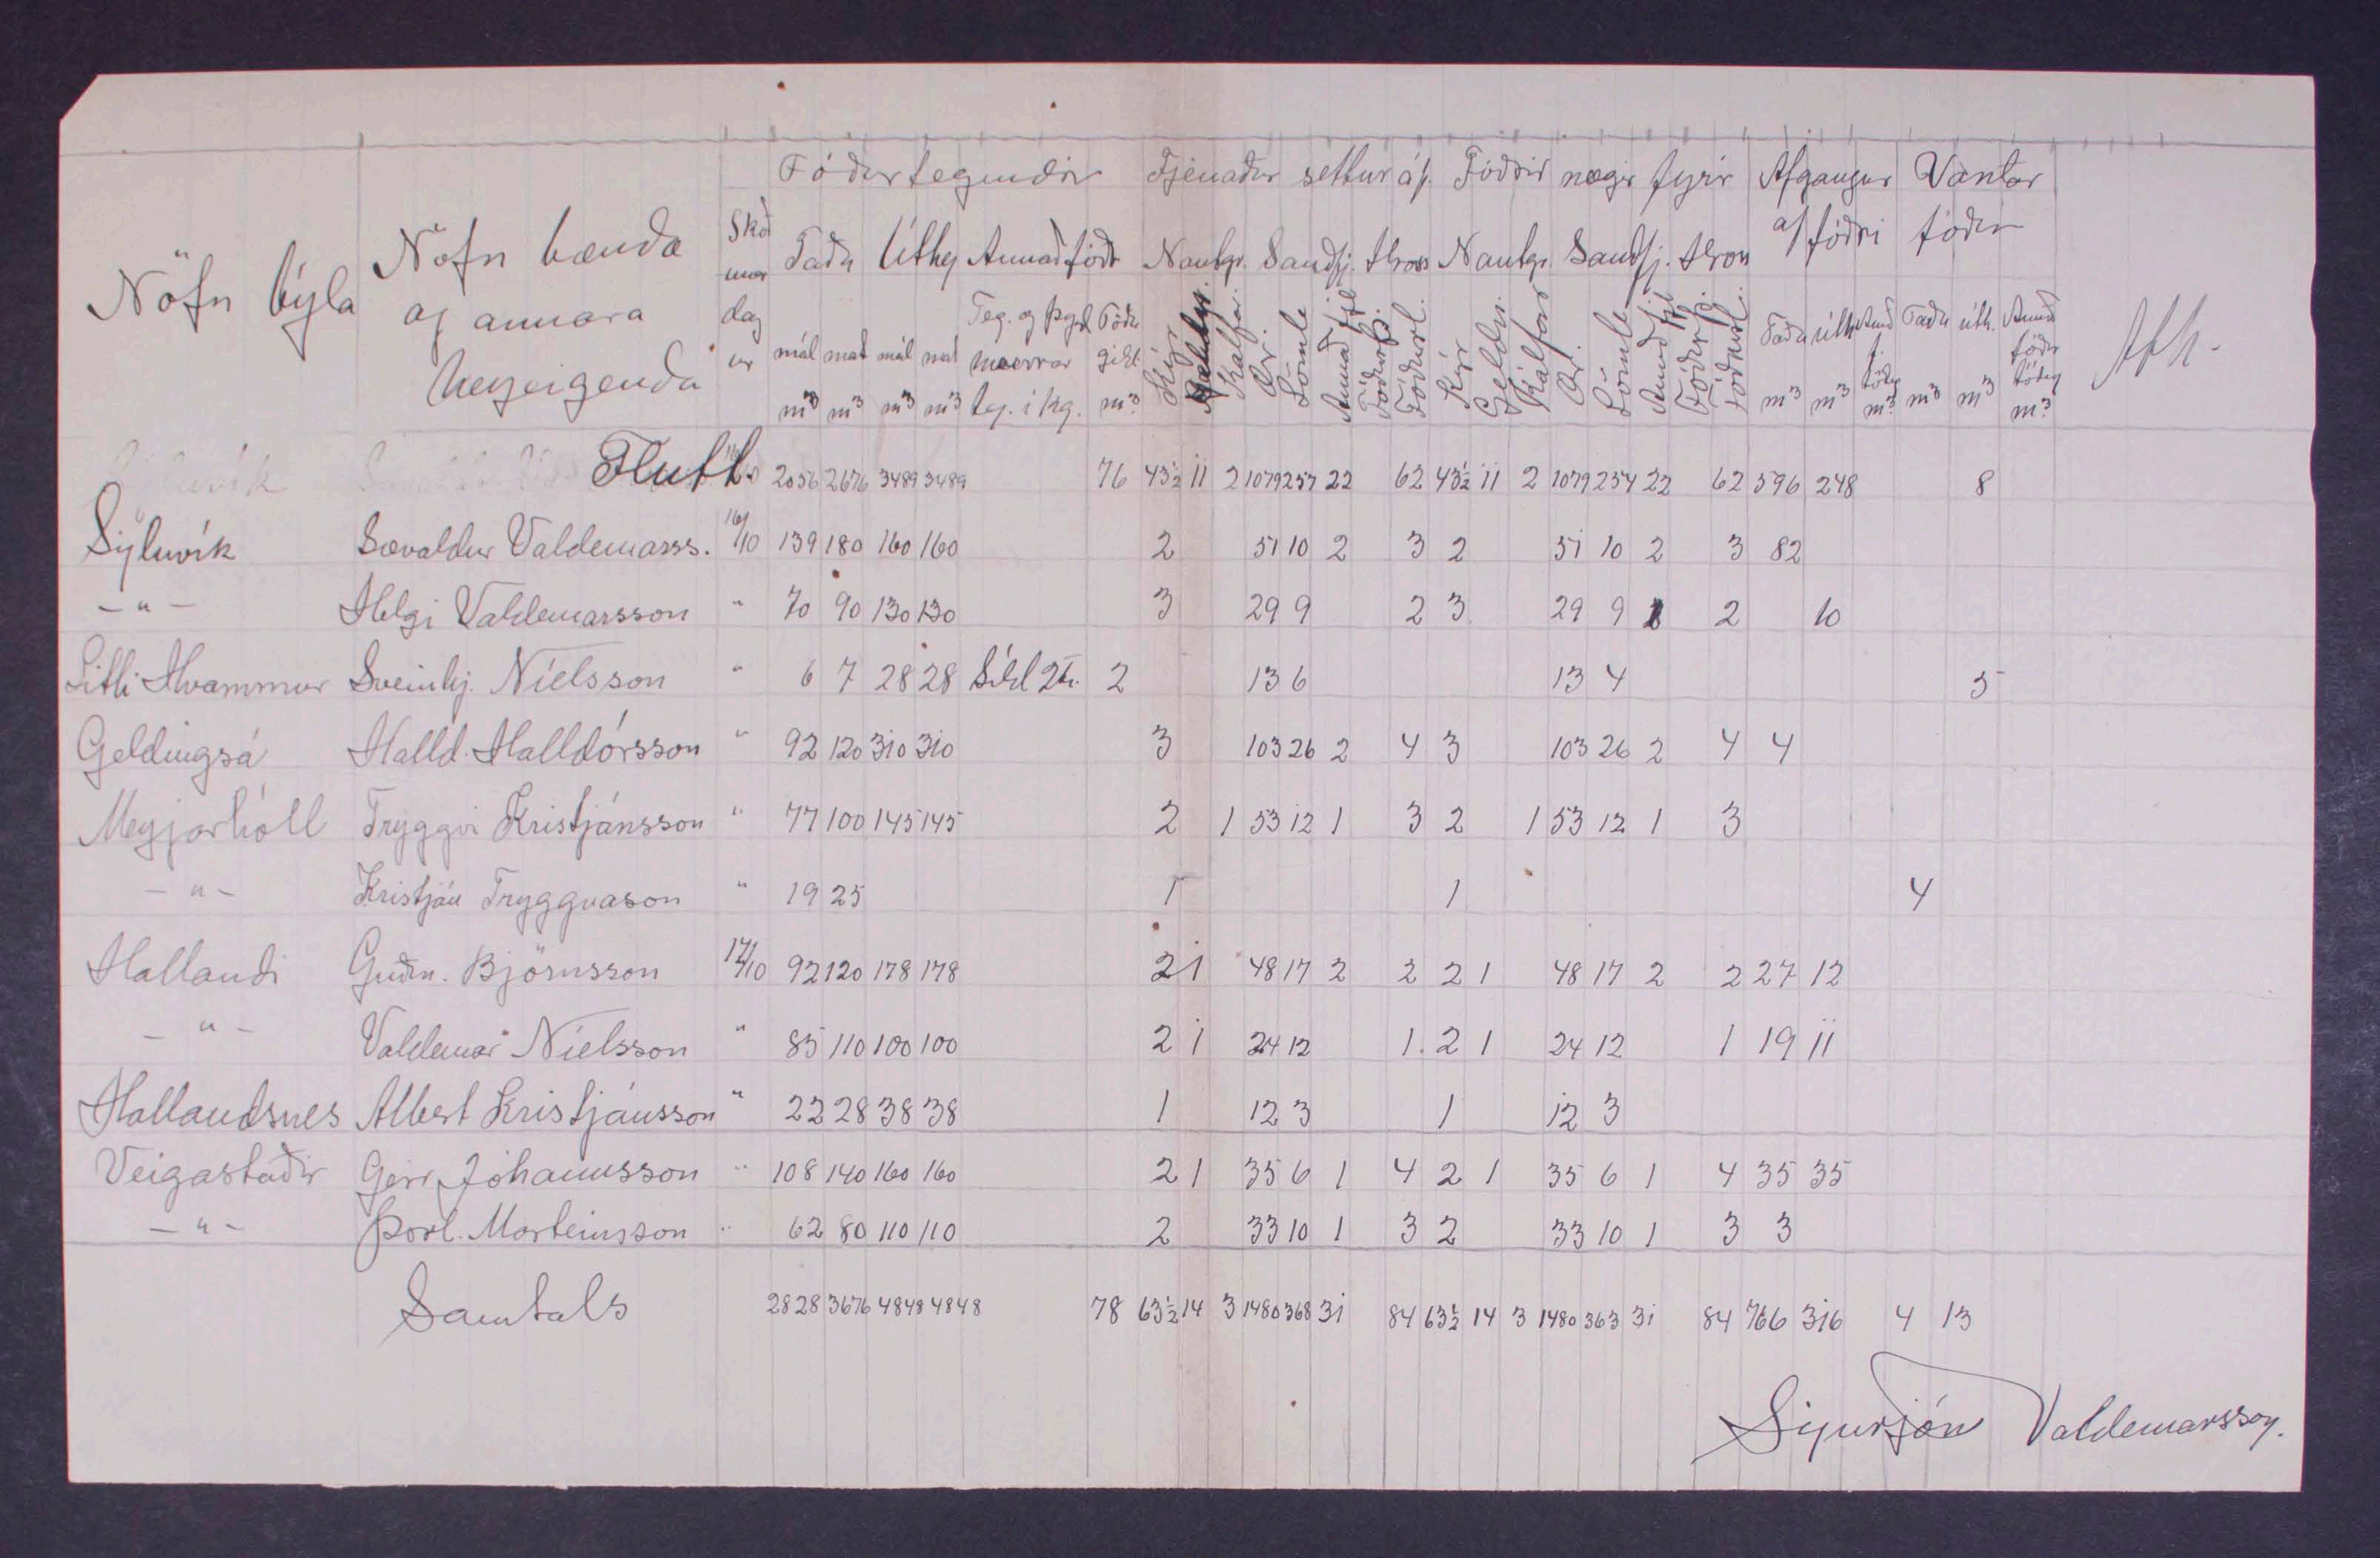 Fóðurtegundir Fjenaður settur á f. Fóðrið nægir fyrir Afgangur Vantar
Nöfn býla Nöfn bænda og annara heyeigenda Skoðunardagur Taða Úthey Annað fóðr Nautgr. Sauðfj. Hross Nautgr. Sauðfj. Hross af fóðri fóður
mál mat mál mat Teg. og þyd Fóðurgildi Kýr Kálfar Ær Lömb Annað fjl Kýr Geldn. Kálfar Ær Lömb Taða úth. Annað f. Taða úth. Annað fóður Ath.
m³ m³ m³ m³ teg. í kg. m³ m³ m³ m³ m³ m³ m³
Flutt 2056 2676 3489 3489 76 43½ 11 2 1079 257 22 62 43½ 11 2 1079 254 22 62 596 248 8
Sýluvík Sævaldur Valdemarss. 16/10 139 180 160 160 2 51 10 2 3 2 51 10 2 3 82
-"- Helgi Valdemarsson " 70 90 130 130 3 29 9 2 3 29 9 2 10
Litli Hvammur Sveinbj. Níelsson " 6 7 28 28 Síld 2 tn. 2 13 6 13 4 5
Geldingsá Halld. Halldórsson " 92 120 310 310 3 103 26 2 4 3 103 26 2 4 4
Meyjarhóll Tryggvi Kristjánsson " 77 100 145 145 2 1 53 12 1 3 2 1 53 12 1 3
-"- Kristján Tryggvason " 19 25 1 1 4
Hallandi Guðm. Björnsson 17/10 92 120 178 178 2 1 48 17 2 2 2 1 48 17 2 2 27 12
-"- Valdemar Níelsson " 85 110 100 100 2 1 24 12 1. 2 1 24 12 1 19 11
Hallandsnes Albert Kristjánsson " 22 28 38 38 1 12 3 1 12 3
Veigastaðir Geir Jóhannsson " 108 140 160 160 2 1 35 6 1 4 2 1 35 6 1 4 35 35
-"- Þorl. Marteinsson " 62 80 110 110 2 33 10 1 3 2 33 10 1 3 3
Samtals 2828 3676 4848 4848 78 63½ 14 3 1480 368 31 84 63½ 14 3 1480 363 31 84 766 316 4 13
Sigurjón Valdemarsson.